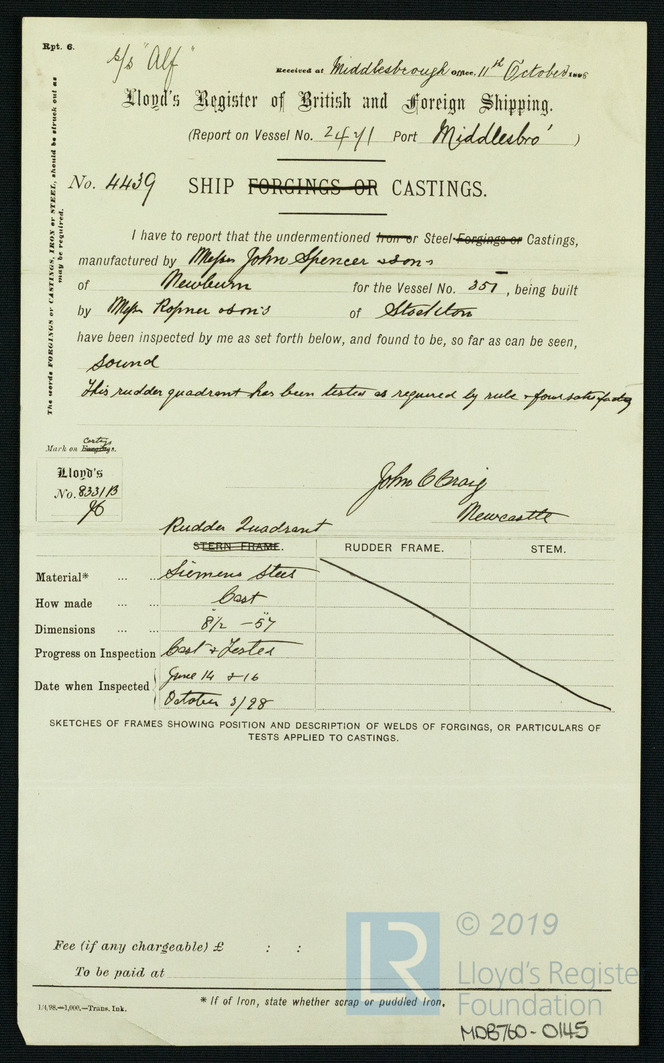 Rpt. 6.
s/s "Alf"
Received at Middlesbrough Office, 11th October 1898
Lloyd's Register of British and Foreign Shipping.
(Report on Vessel No. 2471 Port Middlesbro' )
No. 4439 SHIP FORGINGS OR CASTINGS.
The words FORGINGS or CASTINGS, IRON or STEEL, should be struck out as
may be required.
I have to report that the undermentioned Iron or Steel Forgings or Castings,
manufactured by Messrs John Spencer & Sons
of Newburn for the Vessel No. 357, being built
by Messrs Ropner & Sons of Stockton
have been inspected by me as set forth below, and found to be, so far as can be seen,
Sound
This rudder quadrant has been tested as required by rule & found satisfactory
Mark on Forgings.
Castgs
Lloyd's
No. 8331B
John C Craig
Newcastle
Rudder Quadrant
STERN FRAME. RUDDER FRAME. STEM.
Material* ... ... Siemens Steel
How made ... ... Cast
Dimensions ... ... 8½" - 57
Progress on Inspection Cast & Tested
Date when Inspected June 14 & 16
October 3/98
SKETCHES OF FRAMES SHOWING POSITION AND DESCRIPTION OF WELDS OF FORGINGS, OR PARTICULARS OF
TESTS APPLIED TO CASTINGS.
Fee (if any chargeable) £ : :
To be paid at
* If of Iron, state whether scrap or puddled Iron.
1/4/98.—1,000.—Trans. Ink.
LR
© 2019
Lloyd's Registe
Foundation
MDB760-0145